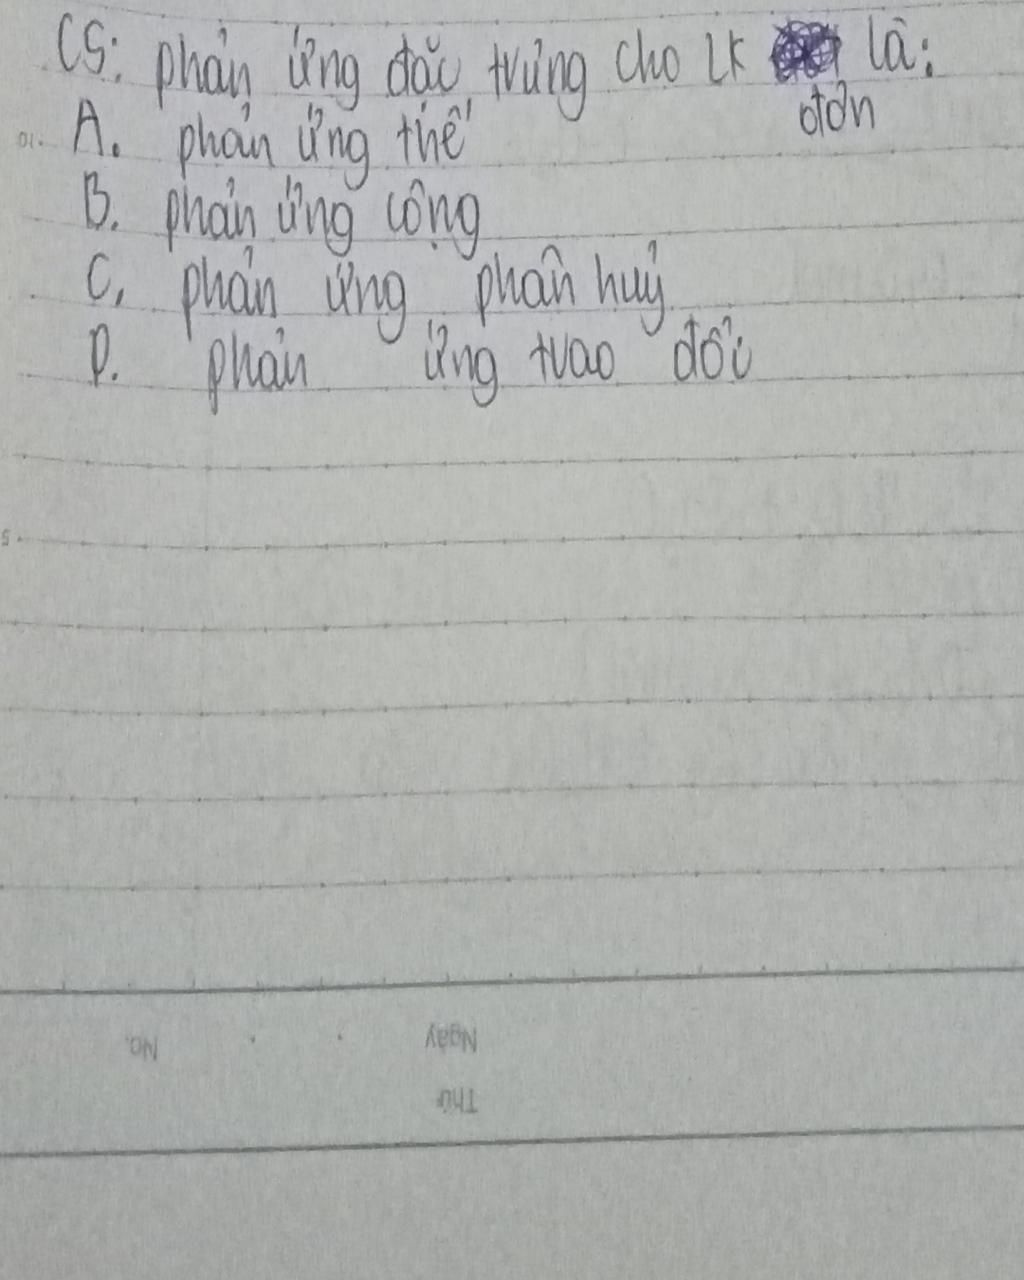 C5: phản ứng đặc trưng cho LK là:
đơn
A. phản ứng thế
B. phản ứng cộng
C. phản ứng phân huỷ
D. phản ứng trao đổi
10
5
No.
Ngày
Thứ